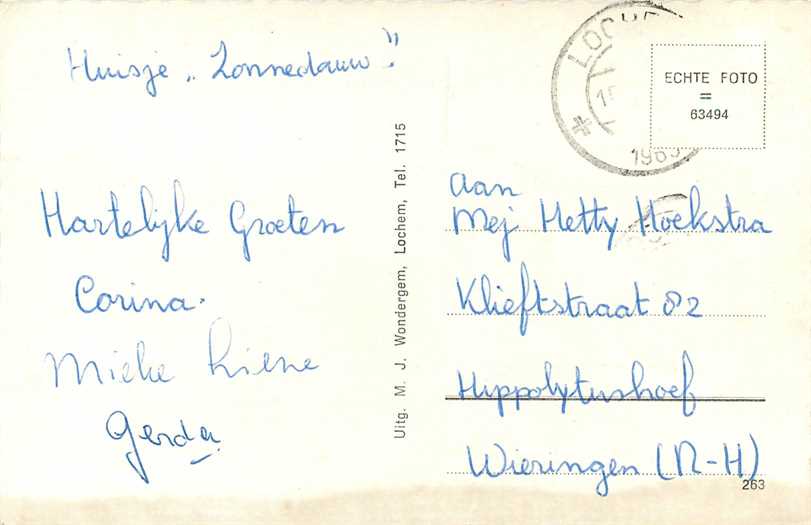 Huisje „ Zonnedauw"
Hartelijke Groeten
Corina.
Mieke Liene
Gerda
Uitg. M. J. Wondergem, Lochem, Tel. 1715
LOCHEM
196
ECHTE FOTO
=
63494
aan
Mej Hetty Hoekstra
Klieftstraat 82
Hippolytushoef
Wieringen (N-H)
263